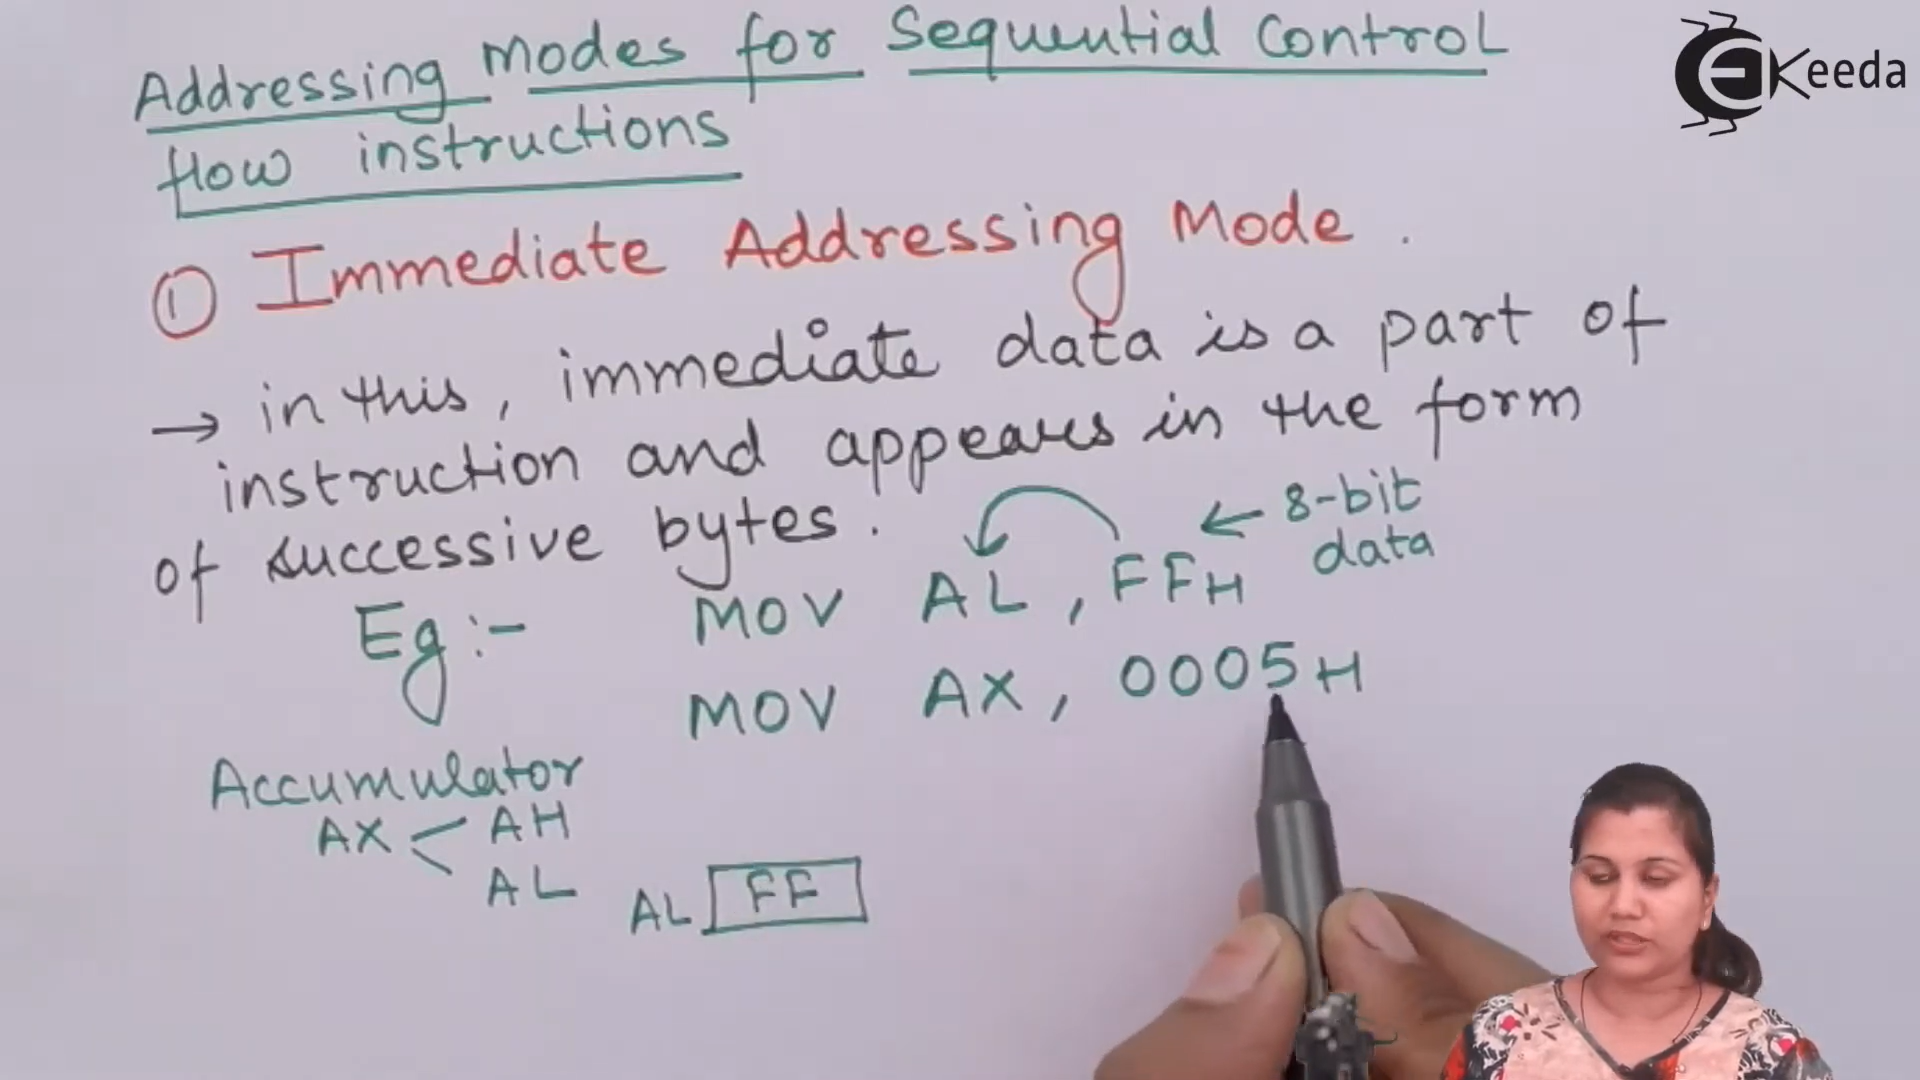 Addressing Modes for Sequential Control
flow instructions
① Immediate Addressing Mode.
→ in this, immediate data is a part of
instruction and appears in the form
of successive bytes.
← 8-bit
data
Eg:- MOV AL, FFH
MOV AX, 0005H
Accumulator
AX AH
AL
AL FF
EKeeda